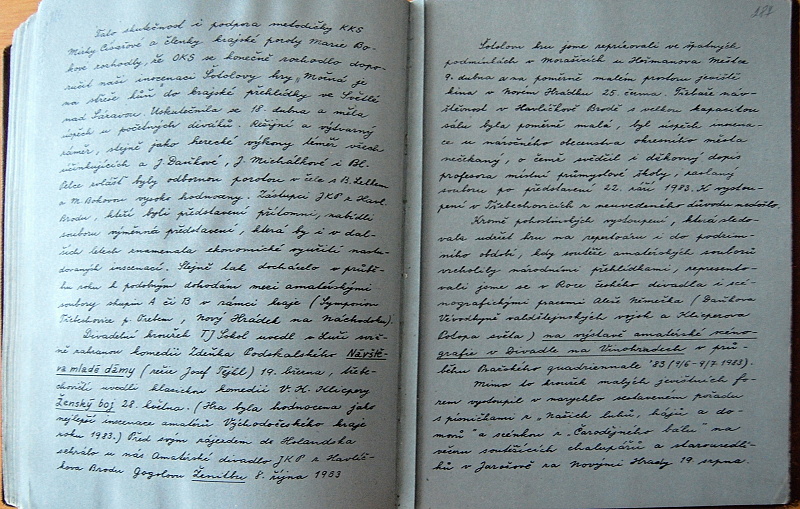 Tato skutečnost i podpora metodičky KKS
Mirky Císařové a členky krajské poroty Marie Bo-
kové rozhodly, že OKS se konečně rozhodlo dopo-
ručit naši inscenaci Sotolovy hry „Možná je
na střeše kůň" do krajské přehlídky ve Světlé
nad Sázavou. Uskutečnila se 18. dubna a měla
úspěch u početných diváků. Režijní a výtvarný
záměr, stejně jako herecké výkony téměř všech
účinkujících a J. Daňkové, J. Michálkové i Bl.
zvlášť byly odbornou porotou v čele s B.
a M. Bokovou vysoko hodnoceny. Zástupci JKP z Havl.
Brodu, kteří byli představení přítomni, nabídli
souboru výměnná představení, která by i v dal-
ších letech znamenala ekonomické využití nastu-
dovaných inscenací. Stejně tak docházelo v průbě-
hu roku k podobným dohodám mezi amatérskými
soubory skupin A či B v rámci kraje (Symposion
Třebechovice p. Orebem, Nový Hrádek na Náchodsku).
Divadelní kroužek TJ Sokol uvedl v Luži sviž-
ně zahranou komedii Zdeňka Podskalského Návště-
va mladé dámy (režie Josef Tejkl) 19. března, třebe-
chovičtí uvedli klasickou komedii V. K. Klicpery
Ženský boj 28. května. (Hra byla hodnocena jako
nejlepší inscenace amatérů Východočeského kraje
roku 1983.) Před svým zájezdem do Holandska
sehrálo u nás Amatérské divadlo JKP z Havlíč-
kova Brodu Gogolovu Ženitbu 8. října 1983
187
Šotolovu hru jsme reprízovali ve špatných
podmínkách v Morašicích u Heřmanova Městce
9. dubna a na poměrně malém prostoru jeviště
kina v Novém Hrádku 25. června. Třebaže náv-
štěvnost v Havlíčkově Brodě s velkou kapacitou
sálu byla poměrně malá, byl úspěch inscena-
ce u náročného obecenstva okresního města
nečekaný, o čemž svědčil i děkovný dopis
profesora místní průmyslové školy, zaslaný
souboru po představení 22. září 1983. K vystou-
pení v Třebechovicích z neuvedeného důvodu nedošlo.
Kromě pohostinských vystoupení, která sledo-
vala udržet hru na repertoáru i do podzim-
ního období, kdy soutěže amatérských souborů
vrcholily národními přehlídkami, reprezento-
vali jsme se v Roce českého divadla i scé-
nografickými pracemi Aleše Němečka (Daňkova
Vévodkyně valdštejnských vojsk a Klicperova
Potopa světa) na výstavě amatérské scéno-
grafie v Divadle na Vinohradech v prů-
běhu Pražského quadriennale '83 (9/6–9/7. 1983).
Mimo to kroužek malých jevištních fo-
rem vystoupil v narychlo sestaveném pořadu
s písničkami z „Našich luhů, hájů a do-
movů" a scénkou z „Čarodějného bálu" na
večeru soutěžících chalupářů a starousedlí-
ků v Jarošově za Novými Hrady 19. srpna.